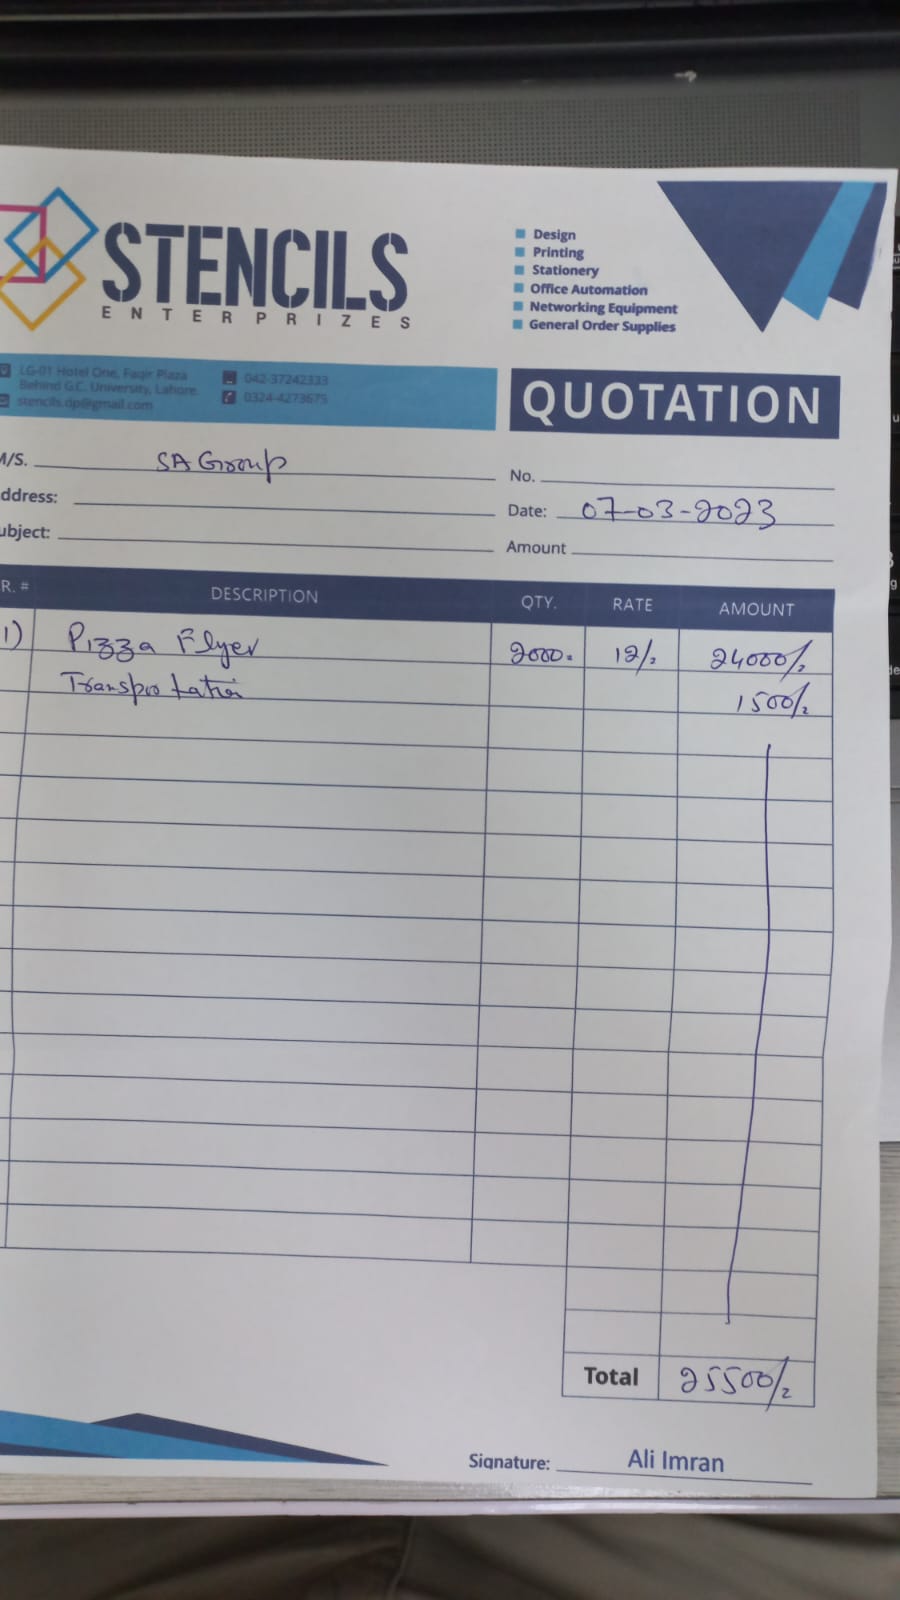 STENCILS
ENTERPRIZES
Design
Printing
Stationery
Office Automation
Networking Equipment
General Order Supplies
LG-01 Hotel One, Faqir Plaza
Behind G.C. University, Lahore.
stencils.dp@gmail.com
042-37242333
0324-4273675
QUOTATION
M/S. SA Group
No.
ddress:
Date: 07-03-2023
ubject:
Amount
R. # DESCRIPTION QTY. RATE AMOUNT
1) Pizza Flyer 2000. 12/2 24000/2
Transportation 1500/2
Total 25500/2
Signature: Ali Imran